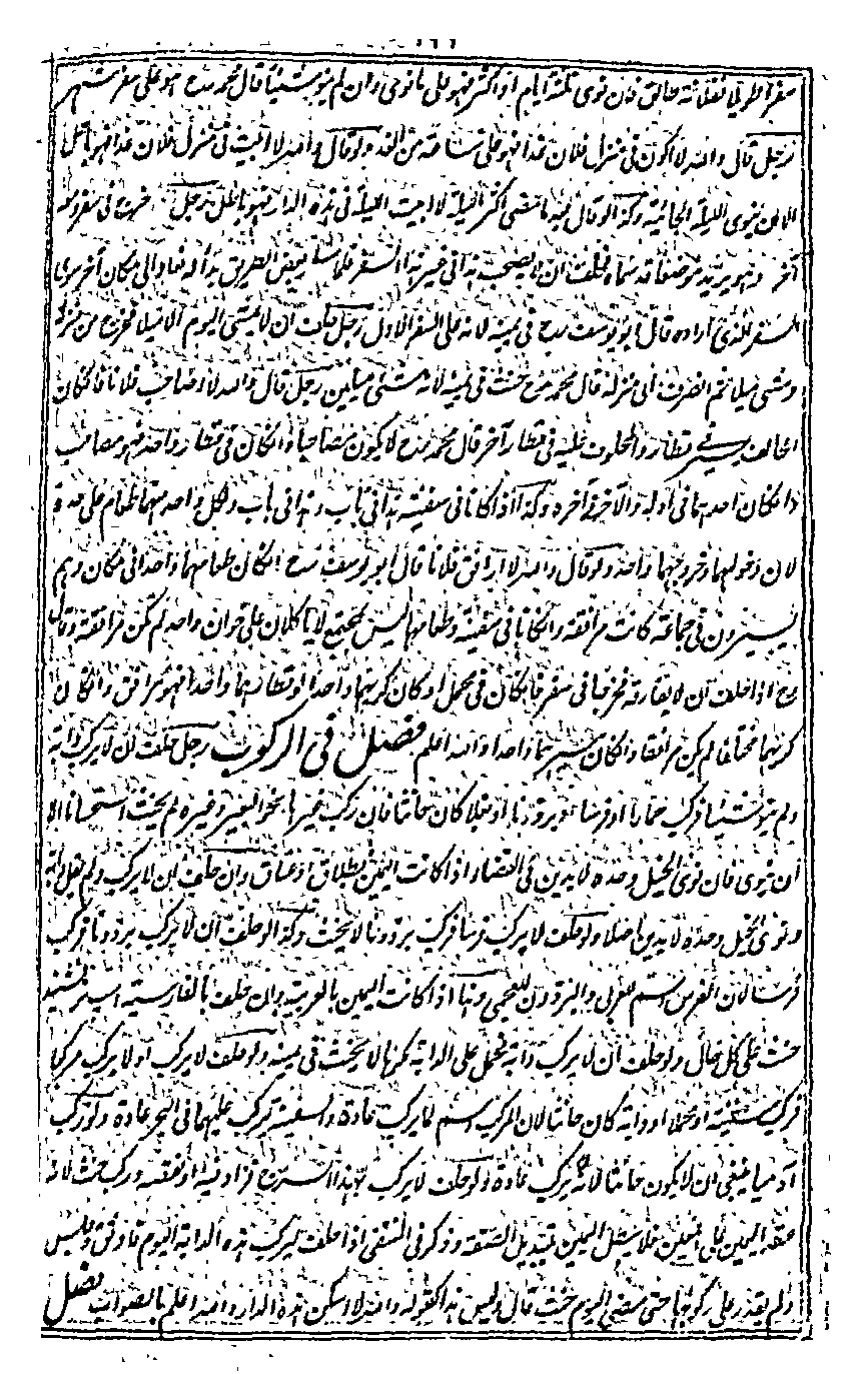 سفرا طويلا فغلانة طالق فان نوى ثلثة ايام او اكثر فهو على ما نوى وان لم ينو شيئا قال محمد رح هو على سفر شهر
رجل قال والله لا اكون في منزل فلان غدا فهو على ساعة من الغد ولو قال والله لا ابيت في منزل فلان غدا فهو باطل
الا ان ينوى الليلة الجائية وكذا لو قال بعد ما مضى اكثر الليلة لا ابيت الليلة في هذه الدار فهو باطل رجل خرج في سفر ومعه
آخر وهو يريد موضعا قد سماه فحلف ان لا يصحب هذا في غير هذا السفر فلما سار بعض الطريق بدا له فعاد الى مكان آخر سوى
السفر الذي اراده قال ابو يوسف رح في يمينه لانه على السفر الاول رجل حلف ان لا يمشى اليوم الا ميلا فخرج من منزله
ومشى ميلا ثم انصرف الى منزله قال محمد رح حنث في يمينه لانه مشى ميلين رجل قال والله لا اصاحب فلانا فان كان
الحالف يسير في قطار والمحلوف عليه في قطار آخر قال محمد رح لا يكون مصاحبا وان كان في قطار واحد فهو مصاحب
وان كان احدهما في اوله والآخر في آخره وكذا اذا كانا في سفينة هذا في باب وهذا في باب ولكل واحد منهما طعام على حدة
لان دخولهما وخروجهما واحد ولو قال والله لا ارافق فلانا قال ابو يوسف رح ان كان طعامهما واحدا في مكان وهم
يسيرون في جماعة كانت مرافقة وان كانا في سفينة وطعامهما ليس بمجتمع لا ياكلان على خوان واحد لم تكن مرافقة وقال
رح اذا حلف ان لا يفارقه فخرجا في سفر فان كان في محمل او كان كريهما واحدا او قطارهما واحدا فهو مرافق وان كان
كريهما مختلفا لم يكن مرافقا وان كان سيرهما واحدا والله اعلم فصل في الركوب رجل حلف ان لا يركب دابة
ولم ينو شيئا فركب حمارا او فرسا او برذونا او بغلا كان حانثا فان ركب غيرها نحو البعير وغيره لم يحنث استحسانا الا
ان ينوى فان نوى الخيل وحده لا يدين في القضاء اذا كانت اليمين بطلاق او عتاق وان حلف ان لا يركب ولم يقل دابة
ونوى الخيل وحده لا يدين اصلا ولو حلف لا يركب فرسا فركب برذونا لا يحنث وكذا لو حلف ان لا يركب برذونا فركب
فرسا لان الفرس اسم للعربى والبرذون للعجمى وهذا اذا كانت اليمين بالعربية وان حلف بالفارسية اسپ برننشيند
حنث على كل حال ولو حلف ان لا يركب دابة فحمل على الدابة مكرها لا يحنث في يمينه ولو حلف لا يركب او لا يركب مركبا
فركب سفينة او محملا او دابة كان حانثا لان المركب اسم لما يركب عادة والسفينة تركب عليها في البحر عادة ولو ركب
آدميا ينبغى ان لا يكون حانثا لانه لا يركب عادة ولو حلف لا يركب بهذا السرج فزاد فيه او نقصه وركب حنث لانه
اليمين على العين فلا تبطل اليمين بتبديل الصفة وذكر في المنتقى اذا حلف ليركبن هذه الدابة اليوم فاوثق وحبس
ولم يقدر على ركوبها حتى مضى اليوم حنث قال وليس هذا كقوله والله لا اسكن هذه الدار والله اعلم بالصواب فصل